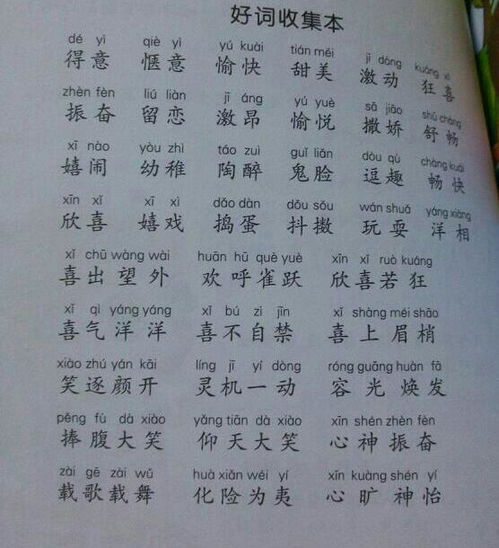 好词收集本
dé yì qiè yì yú kuài tián měi jī dòng kuáng xǐ
得意 惬意 愉快 甜美 激动 狂喜
zhèn fèn liú liàn jī áng yú yuè sā jiāo shū chàng
振奋 留恋 激昂 愉悦 撒娇 舒畅
xī nào yòu zhì táo zuì guǐ liǎn dòu qù chàng kuài
嬉闹 幼稚 陶醉 鬼脸 逗趣 畅快
xīn xǐ xī xì dǎo dàn dǒu sǒu wán shuǎ yáng xiàng
欣喜 嬉戏 捣蛋 抖擞 玩耍 洋相
xǐ chū wàng wài huān hū què yuè xīn xǐ ruò kuáng
喜出望外 欢呼雀跃 欣喜若狂
xǐ qì yáng yáng xǐ bú zì jīn xǐ shàng méi shāo
喜气洋洋 喜不自禁 喜上眉梢
xiào zhú yán kāi líng jī yí dòng róng guāng huàn fā
笑逐颜开 灵机一动 容光焕发
pěng fù dà xiào yǎng tiān dà xiào xīn shén zhèn fèn
捧腹大笑 仰天大笑 心神振奋
zài gē zài wǔ huà xiǎn wéi yí xīn kuàng shén yí
载歌载舞 化险为夷 心旷神怡